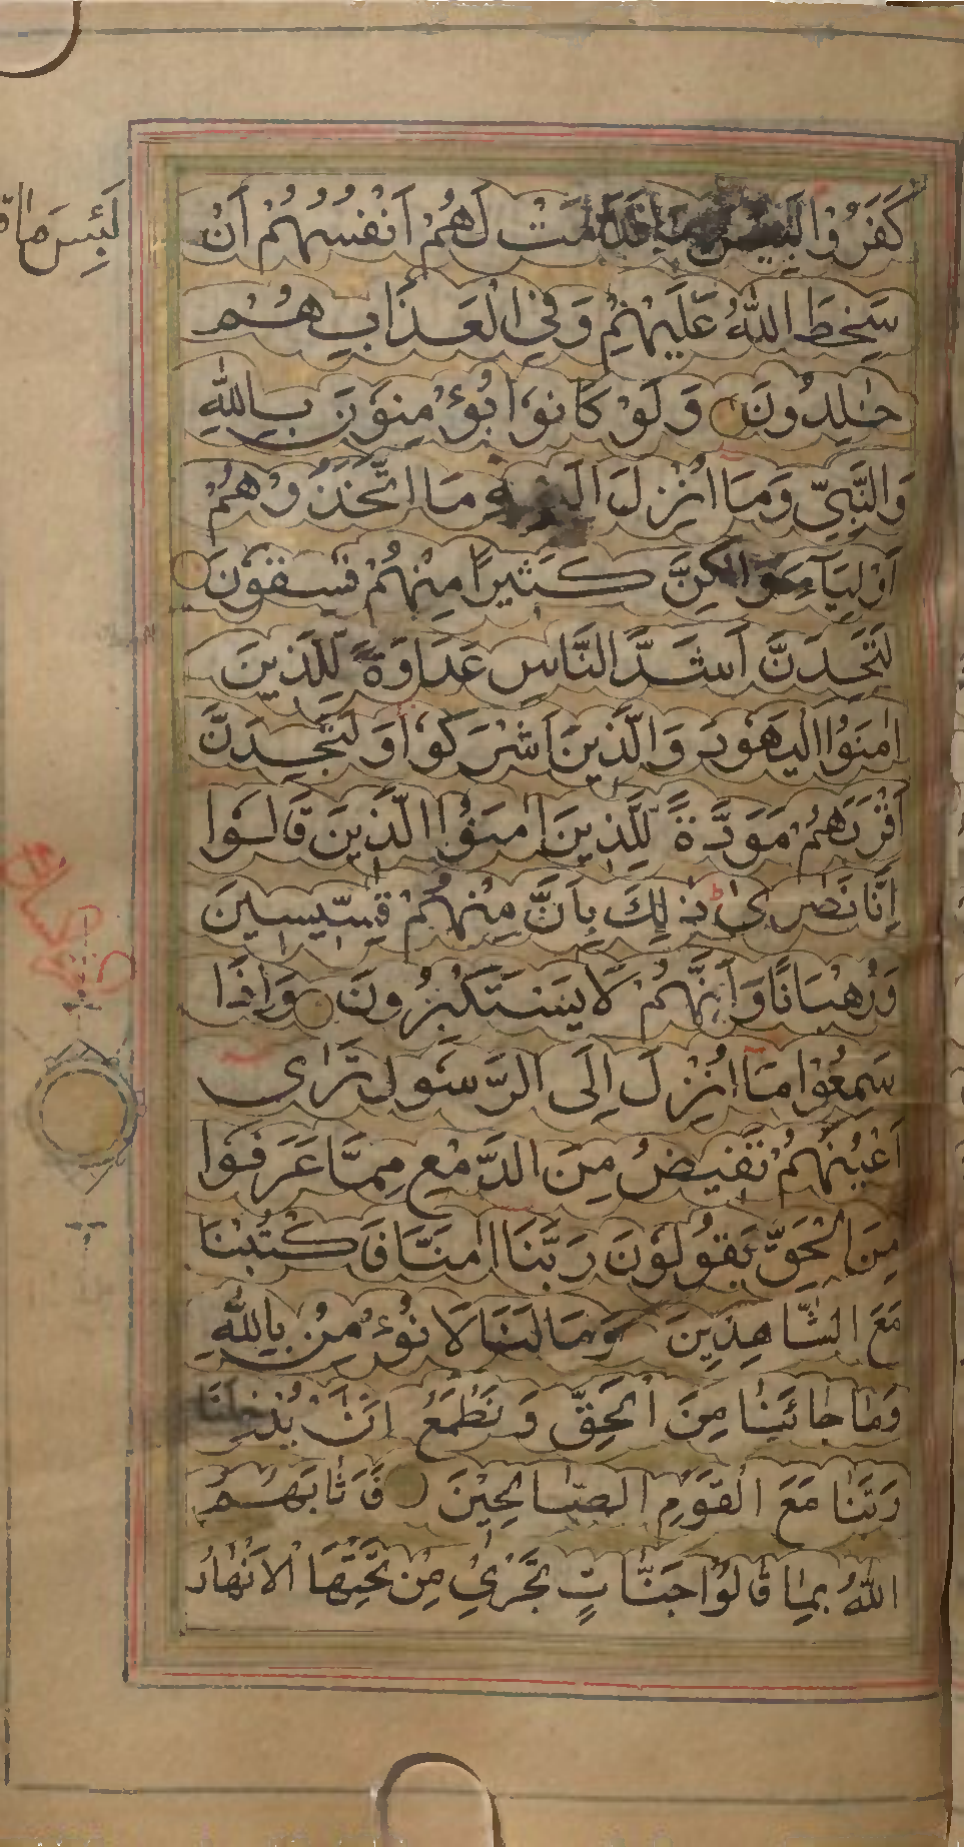 كَفَرُوا لَبِئْسَ مَا قَدَّمَتْ لَهُمْ اَنْفُسُهُمْ اَنْ
لَبِئسَ ما
سَخِطَ اللّٰهُ عَلَيْهِمْ وَفِي الْعَذَابِ هُمْ
خٰلِدُونَ وَلَوْ كَانُوا يُؤْمِنُونَ بِاللّٰهِ
وَالنَّبِيِّ وَمَا اُنْزِلَ اِلَيْهِ مَا اتَّخَذُوهُمْ
اَوْلِيَآءَ وَلٰكِنَّ كَثِيرًا مِنْهُمْ فٰسِقُونَ
لَتَجِدَنَّ اَشَدَّ النَّاسِ عَدَاوَةً لِلَّذِينَ
اٰمَنُوا الْيَهُودَ وَالَّذِينَ اَشْرَكُوا وَلَتَجِدَنَّ
اَقْرَبَهُمْ مَوَدَّةً لِلَّذِينَ اٰمَنُوا الَّذِينَ قَالُوا
اِنَّا نَصٰرٰى ذٰلِكَ بِاَنَّ مِنْهُمْ قِسِّيسِينَ
وَرُهْبَانًا وَاَنَّهُمْ لَا يَسْتَكْبِرُونَ وَاِذَا
سَمِعُوا مَا اُنْزِلَ اِلَى الرَّسُولِ تَرٰى
اَعْيُنَهُمْ تَفِيضُ مِنَ الدَّمْعِ مِمَّا عَرَفُوا
مِنَ الْحَقِّ يَقُولُونَ رَبَّنَا اٰمَنَّا فَاكْتُبْنَا
مَعَ الشَّاهِدِينَ وَمَا لَنَا لَا نُؤْمِنُ بِاللّٰهِ
وَمَا جَائَنَا مِنَ الْحَقِّ وَنَطْمَعُ اَنْ يُدْخِلَنَا
رَبَّنَا مَعَ الْقَوْمِ الصَّالِحِيْنَ فَاَثَابَهُمُ
اللّٰهُ بِمَا قَالُوا جَنَّاتٍ تَجْرِيْ مِنْ تَحْتِهَا الْاَنْهَارُ